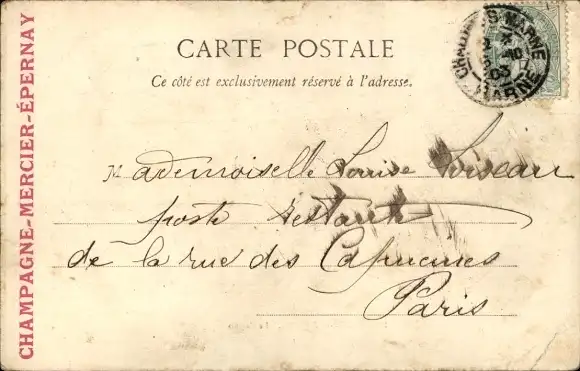 CARTE POSTALE
Ce côté est exclusivement réservé à l'adresse.
CHAMPAGNE-MERCIER-ÉPERNAY
MARNE
03
MARNE
Mademoiselle Louise Loiseau
poste restante
de la rue des Capucines
Paris